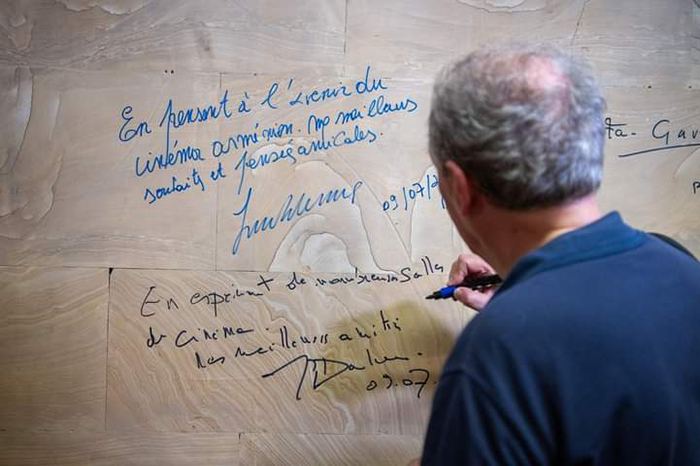 En pensant à l'avenir du
cinéma arménien. mes meilleurs
souhaits et pensées amicales.
09/07/2
En espérant de nombreuses salles
de cinéma
nos meilleures amitiés
09.07.
ta- Gav